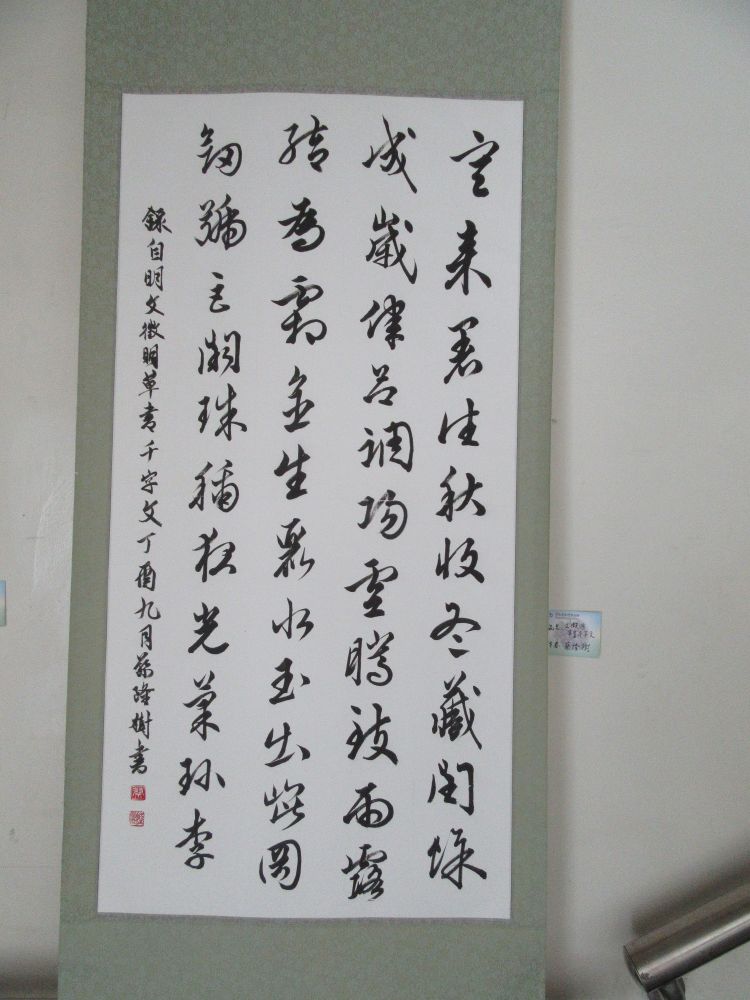 寒来暑往秋收冬藏閏餘
成歲律吕調陽雲騰致雨露
結為霜金生麗水玉出崑岡
劍號巨闕珠稱夜光菓珎李
錄自明文徵明草書千字文丁酉九月蔡隆樹書